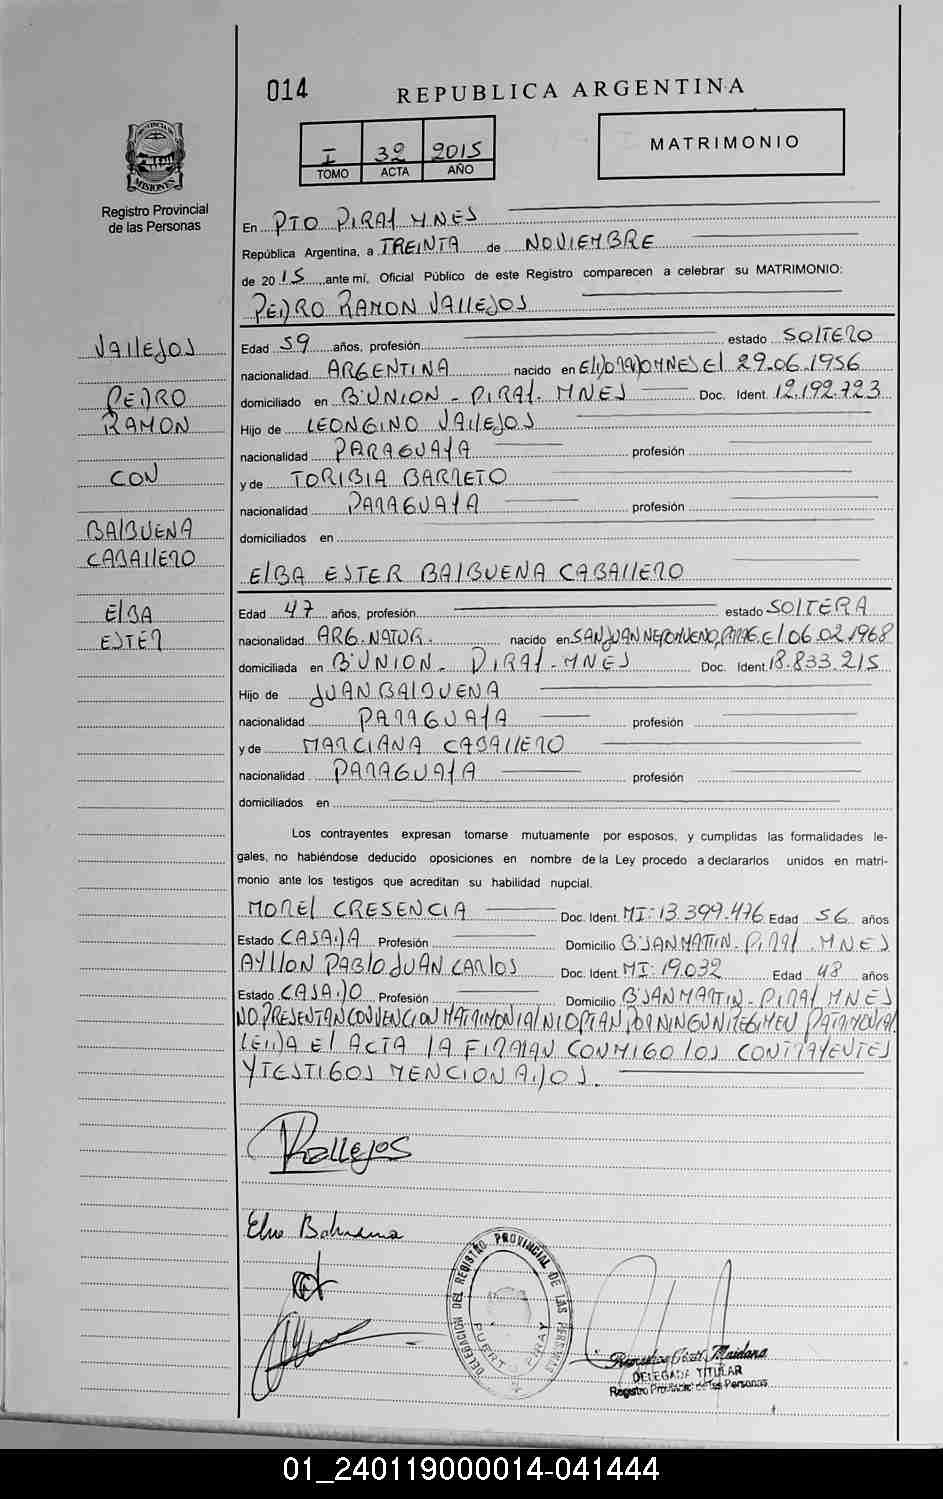 014
REPUBLICA ARGENTINA
I 32 2015
TOMO ACTA AÑO
MATRIMONIO
PROVINCIA DE
MISIONES
Registro Provincial
de las Personas
En PTO PIRAY MNES
República Argentina, a TREINTA de NOVIEMBRE
de 2015 ante mí, Oficial Público de este Registro comparecen a celebrar su MATRIMONIO:
PEDRO RAMON VALLEJOS
VALLEJOS
PEDRO
RAMON
CON
BALBUENA
CABALLERO
ELBA
ESTER
Edad 59 años, profesión estado SOLTERO
nacionalidad ARGENTINA nacido en ELDORADO MNES EL 29.06.1956
domiciliado en B:UNION - PIRAY. MNES Doc. Ident. 12.192.723
Hijo de LEONGINO VALLEJOS
nacionalidad PARAGUAYA profesión
y de TORIBIA BARRETO
nacionalidad PARAGUAYA profesión
domiciliados en
ELBA ESTER BALBUENA CABALLERO
Edad 47 años, profesión estado SOLTERA
nacionalidad ARG. NATUR. nacido en SAN JUAN NEPOMUENO, PARAG. EL 06.02.1968
domiciliada en B:UNION - PIRAY - MNES Doc. Ident. 18.833.215
Hijo de JUAN BALBUENA
nacionalidad PARAGUAYA profesión
y de MARCIANA CABALLERO
nacionalidad PARAGUAYA profesión
domiciliados en
Los contrayentes expresan tomarse mutuamente por esposos, y cumplidas las formalidades le-
gales, no habiéndose deducido oposiciones en nombre de la Ley procedo a declararlos unidos en matri-
monio ante los testigos que acreditan su habilidad nupcial.
MOREL CRESENCIA Doc. Ident. MI: 13.399.476 Edad 56 años
Estado CASADA Profesión Domicilio B:SAN MARTIN - PIRAY. MNES
AYLLON PABLO JUAN CARLOS Doc. Ident. MI: 19.032 Edad 48 años
Estado CASADO Profesión Domicilio B:SAN MARTIN - PIRAY MNES
NO PRESENTAN CONVENCION MATRIMONIAL NI OPTAN POR NINGUN REGIMEN PATRIMONIAL
LEIDA EL ACTA LA FIRMAN CONMIGO LOS CONTRAYENTES
Y TESTIGOS MENCIONADOS.
Vallejos
Elva Balbuena
DELEGACION DEL REGISTRO PROVINCIAL DE LAS PERSONAS
PUERTO PIRAY
Maidana
DELEGADA TITULAR
Registro Provincial de las Personas
01_240119000014-041444